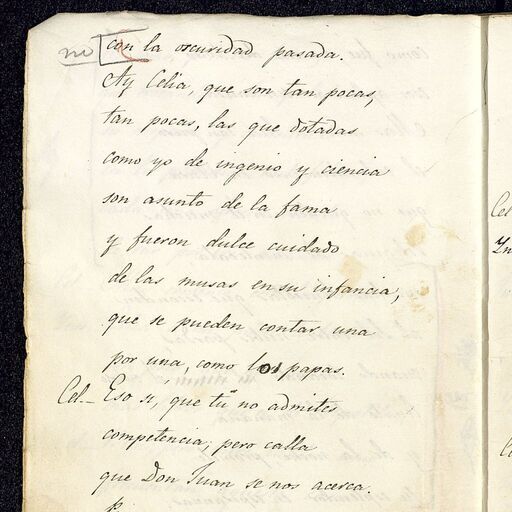 no con la oscuridad pasada.
Ay Celia, que son tan pocas,
tan pocas, las que dotadas
como yo de ingenio y ciencia
son asunto de la fama
y fueron dulce cuidado
de las musas en su infancia,
que se pueden contar una
por una, como los papas.
Cel.- Eso sí, que tu no admites
competencia; pero calla
que Don Juan se nos acerca.
Cel
In